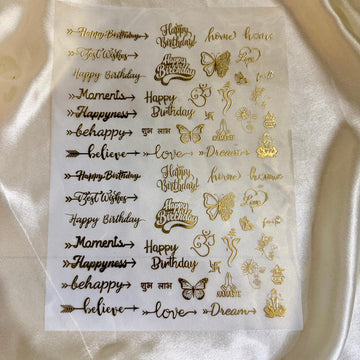 Happy Birthday Happy Birthday! home home
Best Wishes Love
Happy Birthday Happy Birthday
Moments Happy Birthday ॐ
Happyness
behappy शुभ लाभ NAMASTE
believe love Dream
Happy Birthday Happy Birthday! home home
Best Wishes Love
Happy Birthday Happy Birthday
Moments Happy Birthday ॐ
Happyness
behappy शुभ लाभ NAMASTE
believe love Dream